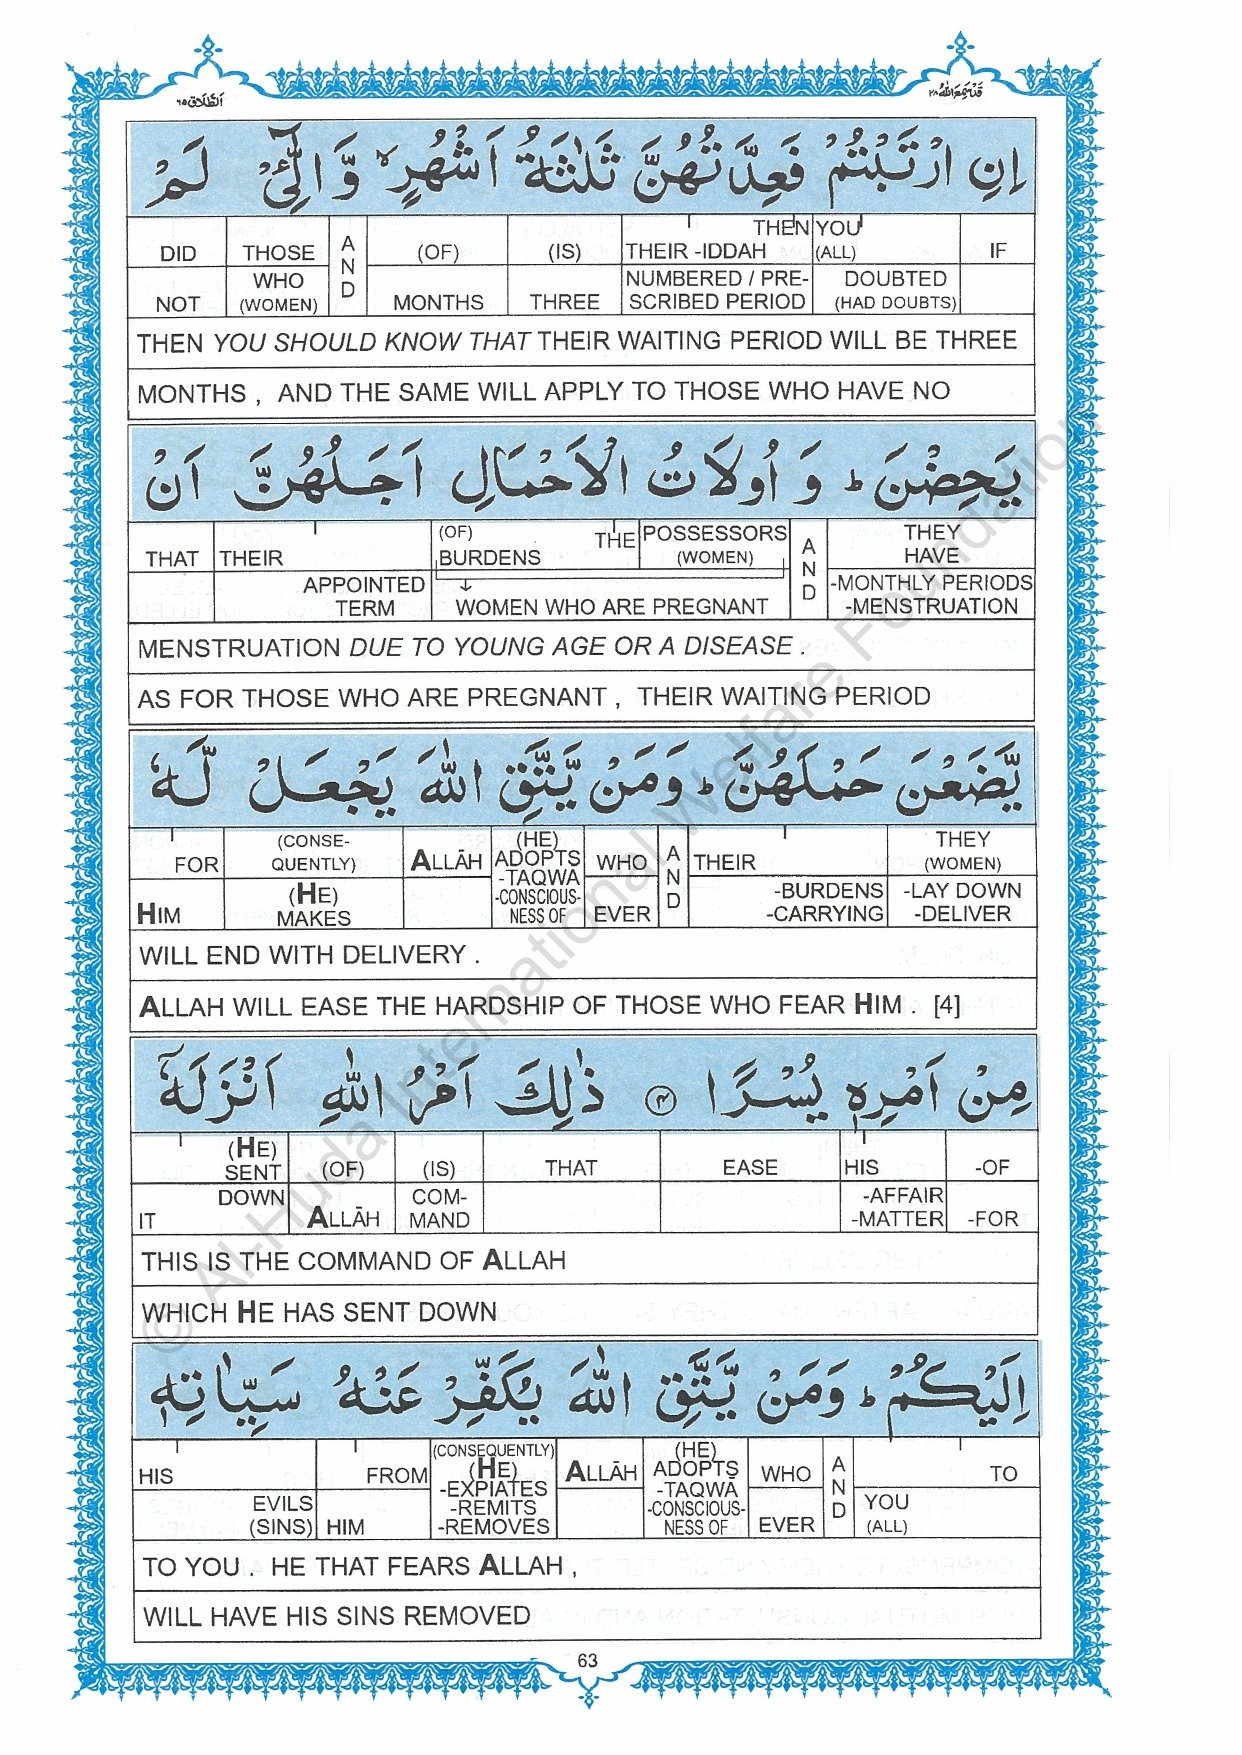 اَلطَّلَاق ٦٥
قَدْ سَمِعَ اللّٰهُ ٢٨
اِنِ ارْتَبْتُمْ فَعِدَّتُهُنَّ ثَلٰثَةُ اَشْهُرٍ ۙ وَّ الّٰٓئِیْ لَمْ
DID THOSE AND (OF) (IS) THEN YOU
THEIR -IDDAH (ALL) IF
NOT WHO (WOMEN) MONTHS THREE NUMBERED / PRE-SCRIBED PERIOD DOUBTED (HAD DOUBTS)
THEN YOU SHOULD KNOW THAT THEIR WAITING PERIOD WILL BE THREE
MONTHS , AND THE SAME WILL APPLY TO THOSE WHO HAVE NO
یَحِضْنَ ؕ وَ اُولَاتُ الْاَحْمَالِ اَجَلُهُنَّ اَنْ
THAT THEIR (OF) BURDENS THE POSSESSORS (WOMEN) AND THEY HAVE
APPOINTED TERM ↓ WOMEN WHO ARE PREGNANT -MONTHLY PERIODS -MENSTRUATION
MENSTRUATION DUE TO YOUNG AGE OR A DISEASE .
AS FOR THOSE WHO ARE PREGNANT , THEIR WAITING PERIOD
یَّضَعْنَ حَمْلَهُنَّ ؕ وَمَنْ یَّتَّقِ اللّٰهَ یَجْعَلْ لَّهٗ
FOR (CONSE-QUENTLY) ALLĀH (HE) ADOPTS -TAQWA WHO AND THEIR THEY (WOMEN)
HIM (HE) MAKES -CONSCIOUS-NESS OF EVER -BURDENS -CARRYING -LAY DOWN -DELIVER
WILL END WITH DELIVERY .
ALLAH WILL EASE THE HARDSHIP OF THOSE WHO FEAR HIM . [4]
مِنْ اَمْرِهٖ یُسْرًا ﴿۴﴾ ذٰلِكَ اَمْرُ اللّٰهِ اَنْزَلَهٗۤ
(HE) SENT (OF) (IS) THAT EASE HIS -OF
IT DOWN ALLĀH COM-MAND -AFFAIR -MATTER -FOR
THIS IS THE COMMAND OF ALLAH
WHICH HE HAS SENT DOWN
اِلَیْكُمْ ؕ وَمَنْ یَّتَّقِ اللّٰهَ یُكَفِّرْ عَنْهُ سَیِّاٰتِهٖ
HIS FROM (CONSEQUENTLY) (HE) -EXPIATES ALLĀH (HE) ADOPTS -TAQWA WHO AND TO
EVILS (SINS) HIM -REMITS -REMOVES -CONSCIOUS-NESS OF EVER YOU (ALL)
TO YOU . HE THAT FEARS ALLAH ,
WILL HAVE HIS SINS REMOVED
63
© Al-Huda International Welfare Foundation